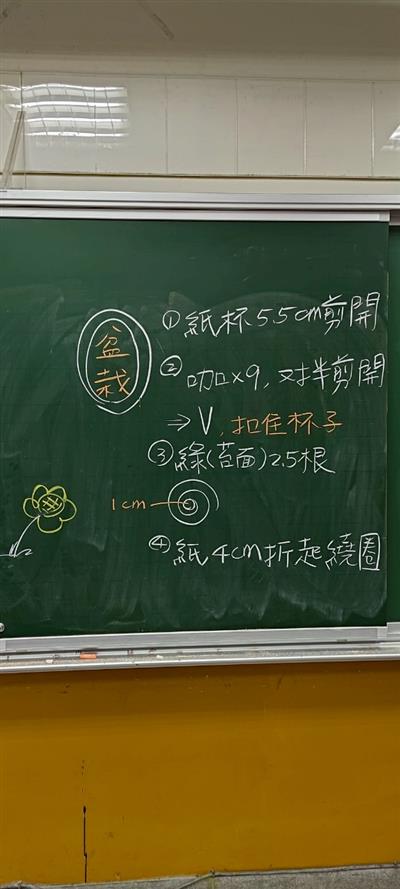 盆栽
①紙杯5.5cm剪開
②咖×9,对半剪開
⇒V,扣住杯子
③綠(苔面)2.5根
1cm
④紙4cm折起繞圈